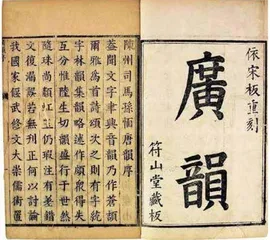 依宋板重刻
廣韻
符山堂藏板
陳州司馬孫愐唐韻序
蓋聞文字聿興音韻乃作蒼頡
爾雅爲首詩頌次之則有字統
字林韻集韻略述作頗衆得失
互分惟陸生切韻盛行于世然
隨珠尚纇虹玉仍瑕注有差錯
文復漏誤若無刊正何以討論
我國家偃武修文大崇儒術置